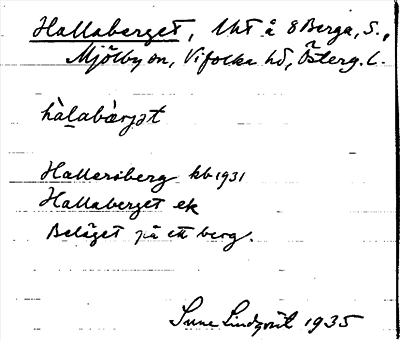 Hallaberget, lht å 8 Berga, S.,
Mjölby sn, Vifolka hd, Österg. l.
hàlabæ̀rjət
Hallersberg kb 1931
Hallaberget ek
Beläget på ett berg.
Sune Lindqvist 1935